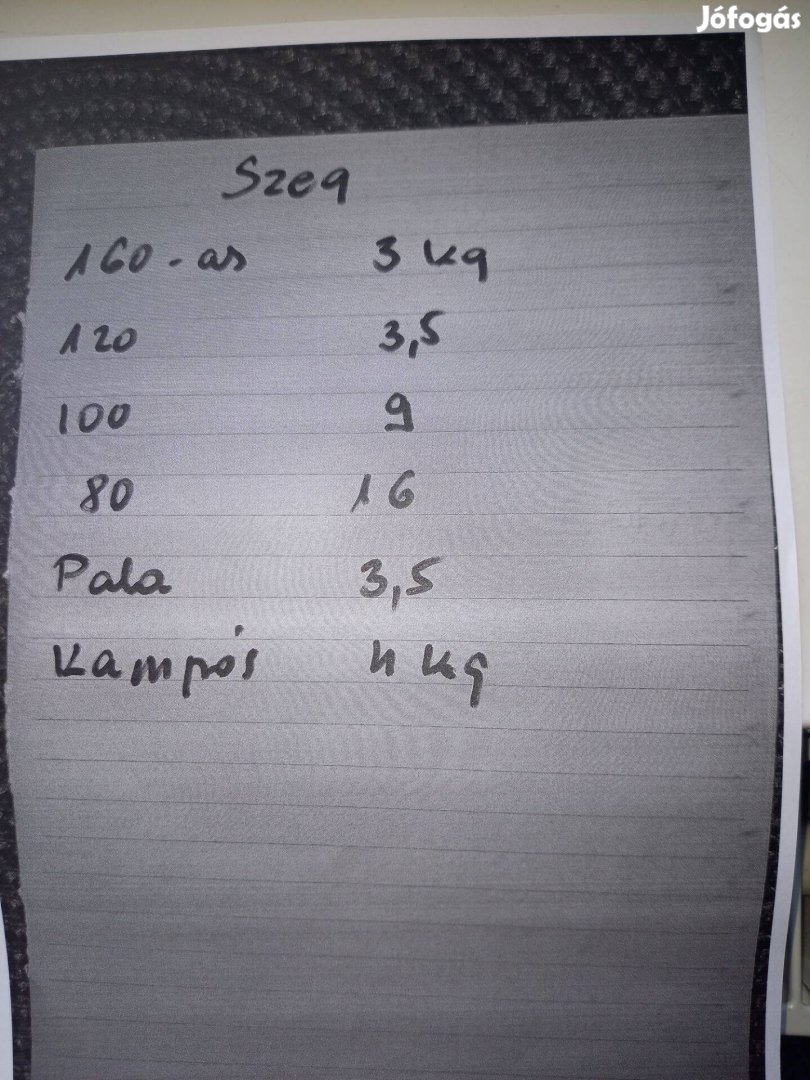 Jófogás
Szeg
160-as 3 kg
120 3,5
100 9
80 16
Pala 3,5
Kampós 4 kg